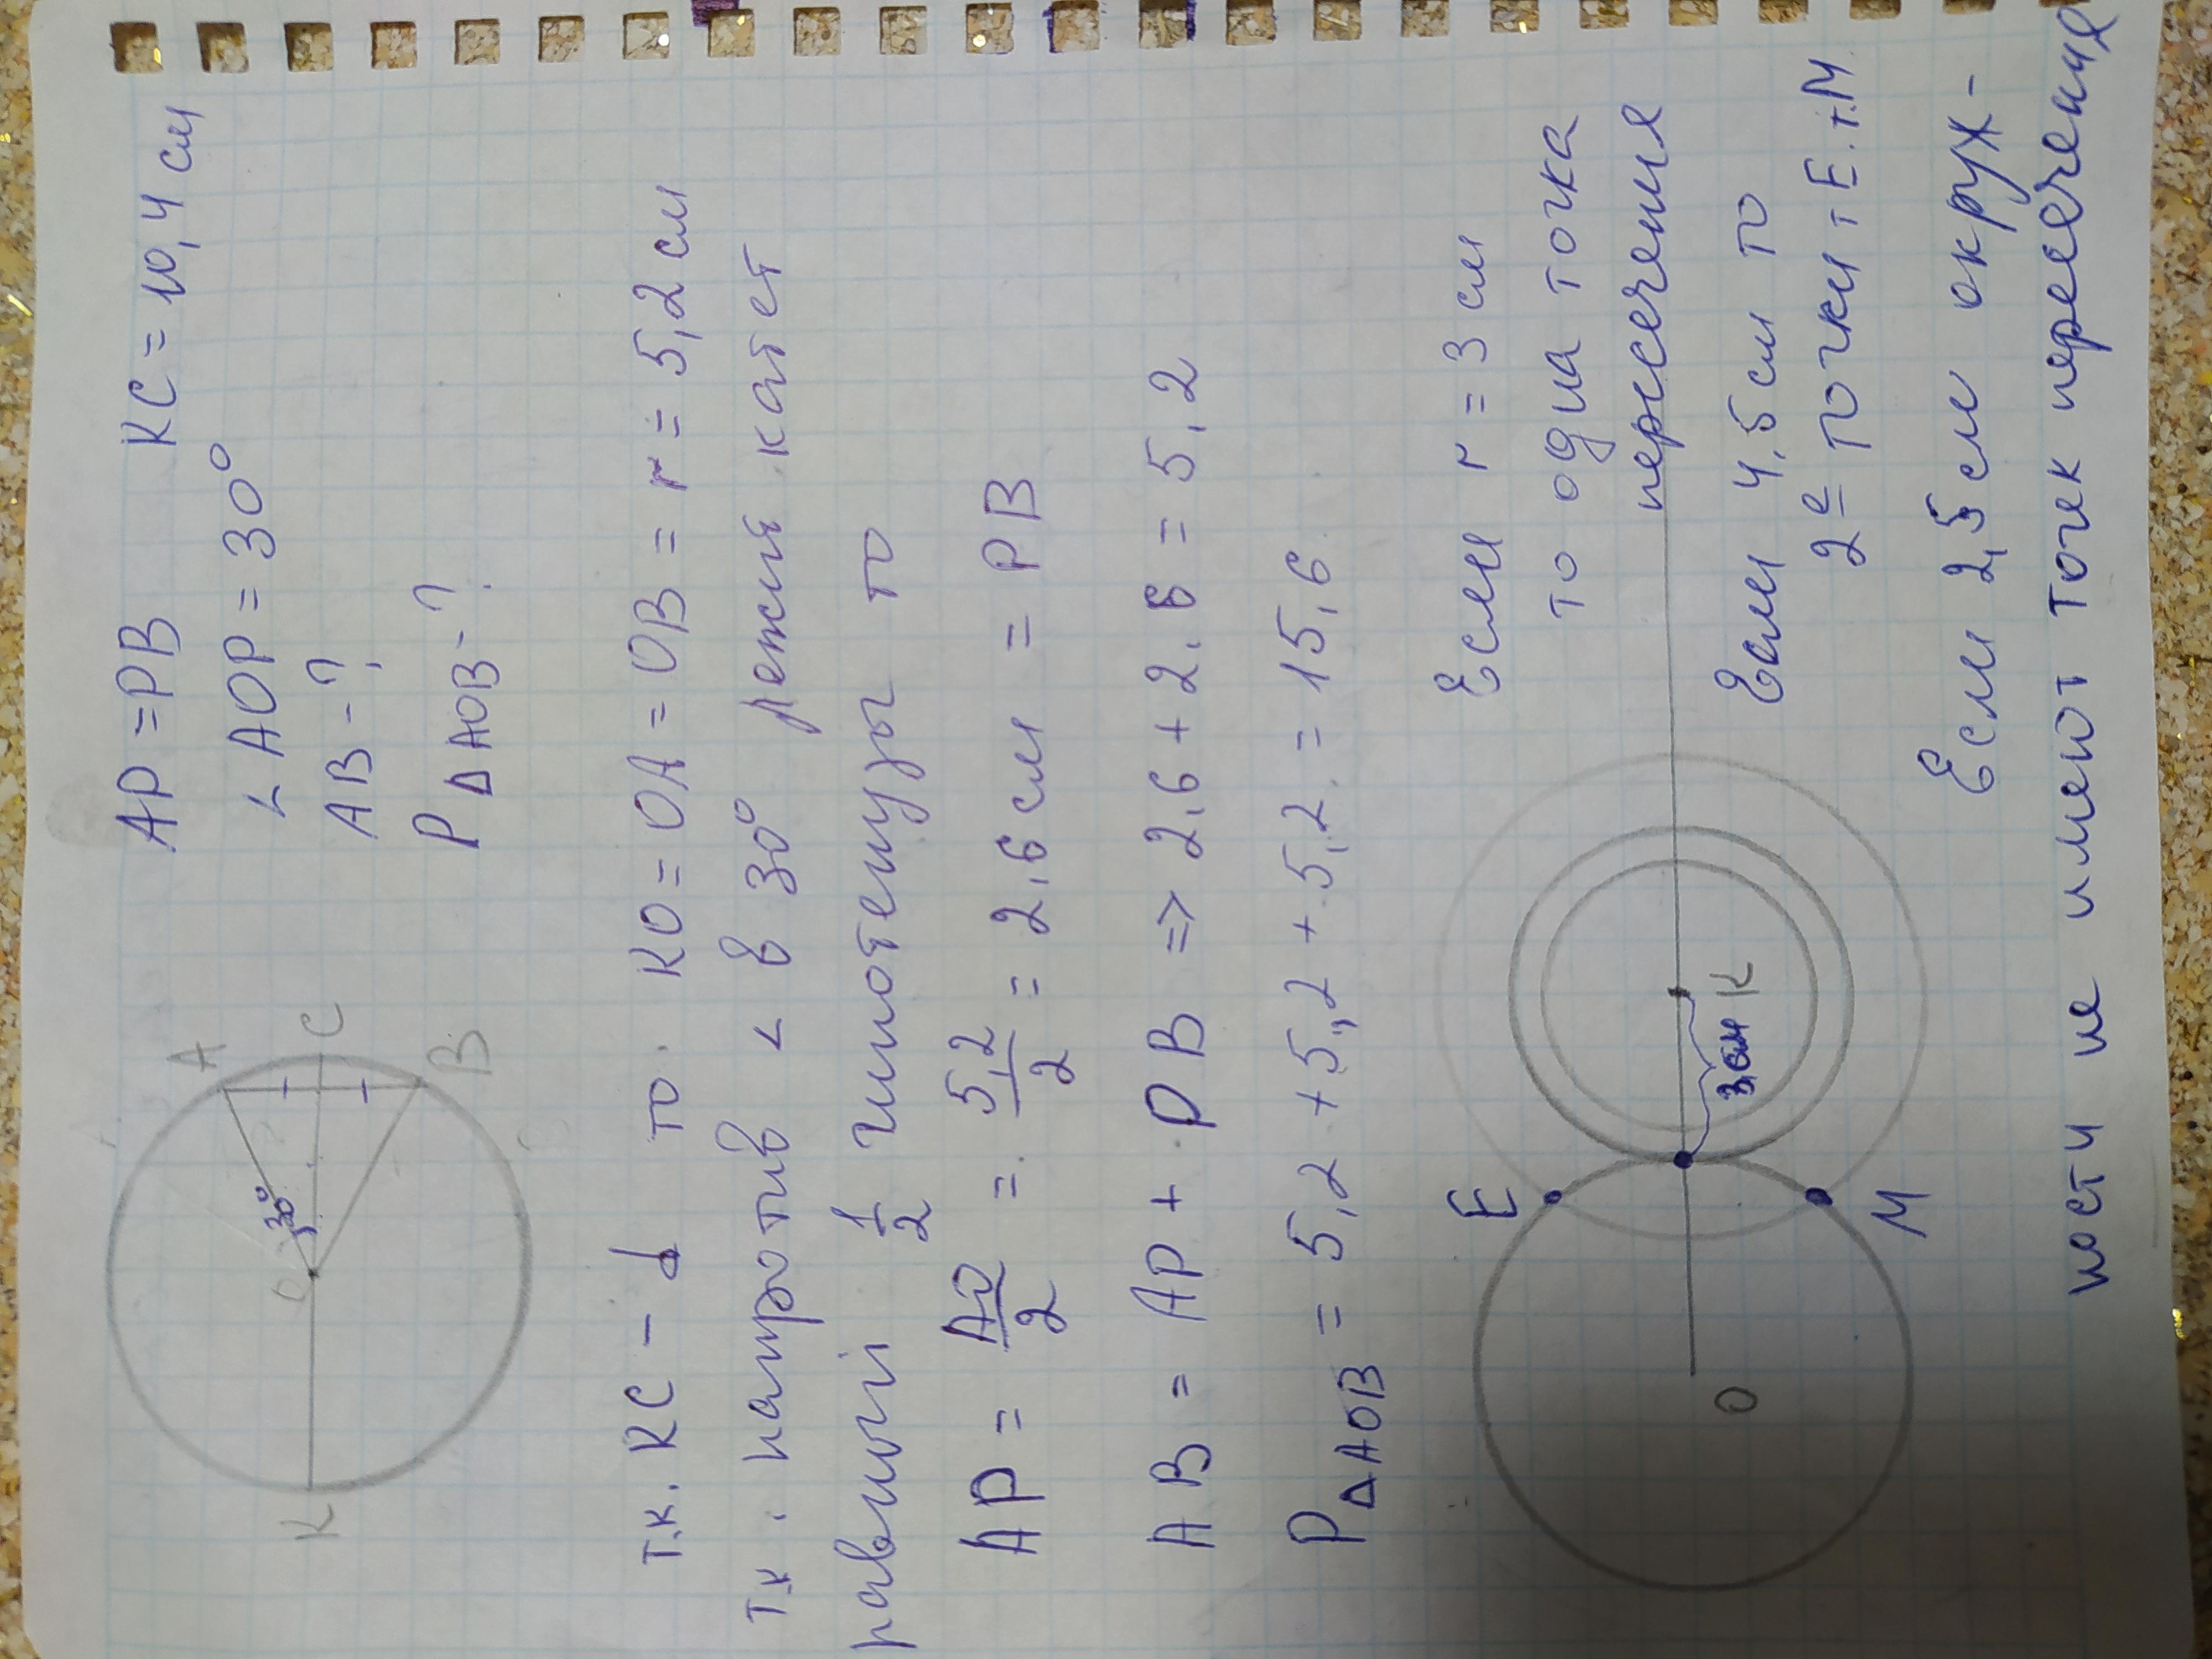 AP = PB KC = 10,4 см
∠ AOP = 30°
AB - ?
P Δ AOB - ?
A
C
B
O
30°
K
т.к. KC - d то. KO = OA = OB = r = 5,2 см
т.к. напротив ∠ в 30° лежит катет
равный 1/2 гипотенузы то
AP = AO/2 = 5,2/2 = 2,6 см = PB
AB = AP + PB => 2,6 + 2,6 = 5,2
P Δ AOB = 5,2 + 5,2 + 5,2 = 15,6
Если r = 3 см
то одна точка
пересечения
Если 4,5 см то
2е точки т E. т.M
Если 2,5 см окруж-
ности не имеют точек пересечения
E
M
O
K
3 см